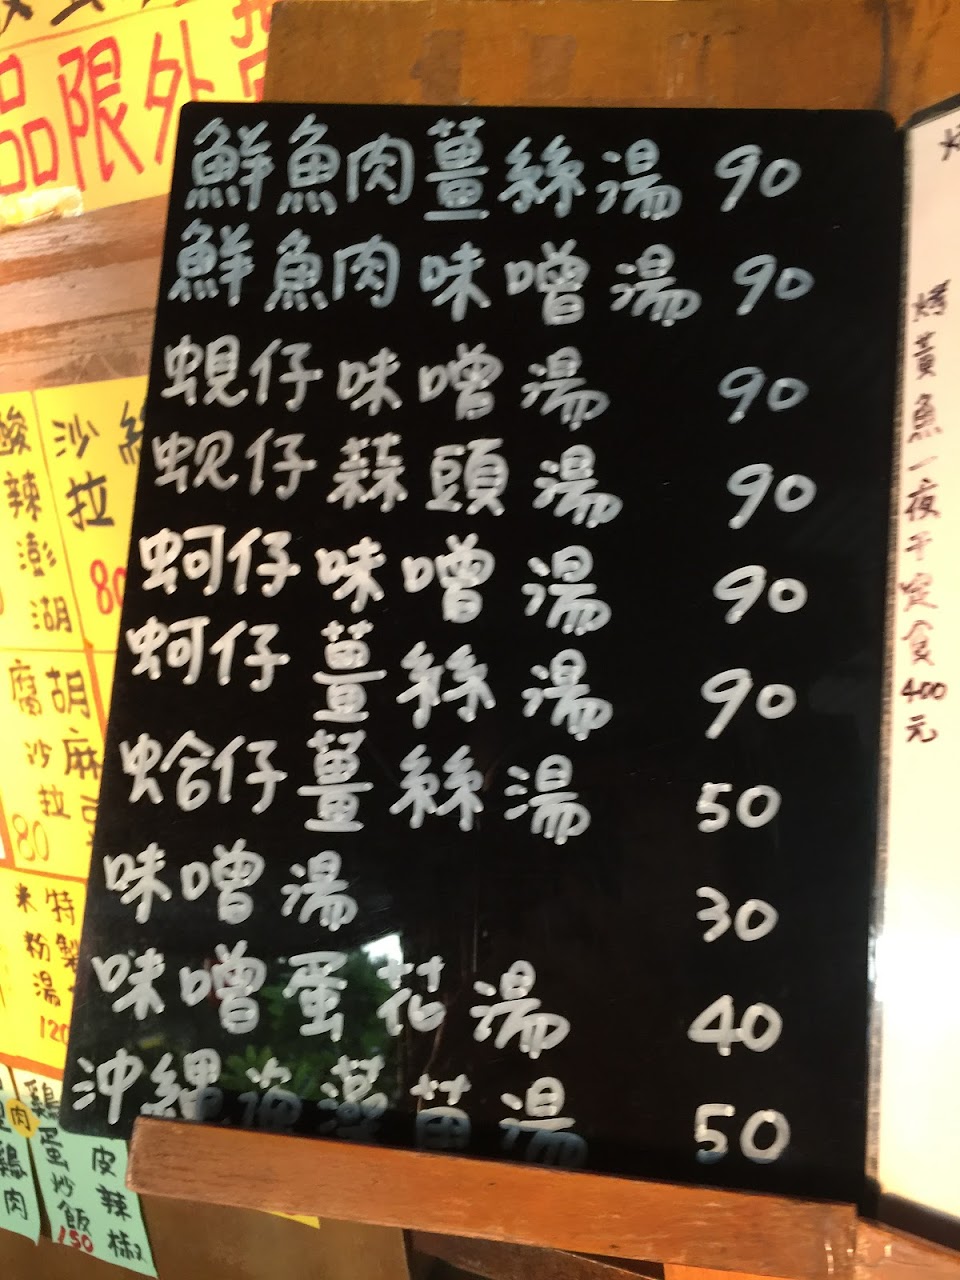 品限外
鮮魚肉薑絲湯 90
鮮魚肉味噌湯 90
蜆仔味噌湯 90
蜆仔蒜頭湯 90
蚵仔味噌湯 90
蚵仔薑絲湯 90
蛤仔薑絲湯 50
味噌湯 30
味噌蛋花湯 40
沖繩海藻菌湯 50
烤黃魚一夜干定食400元
酸辣澎湖
沙拉
80
胡麻
腐沙拉
80
特製
米粉湯
120
雞肉
雞蛋炒飯
150
皮辣椒